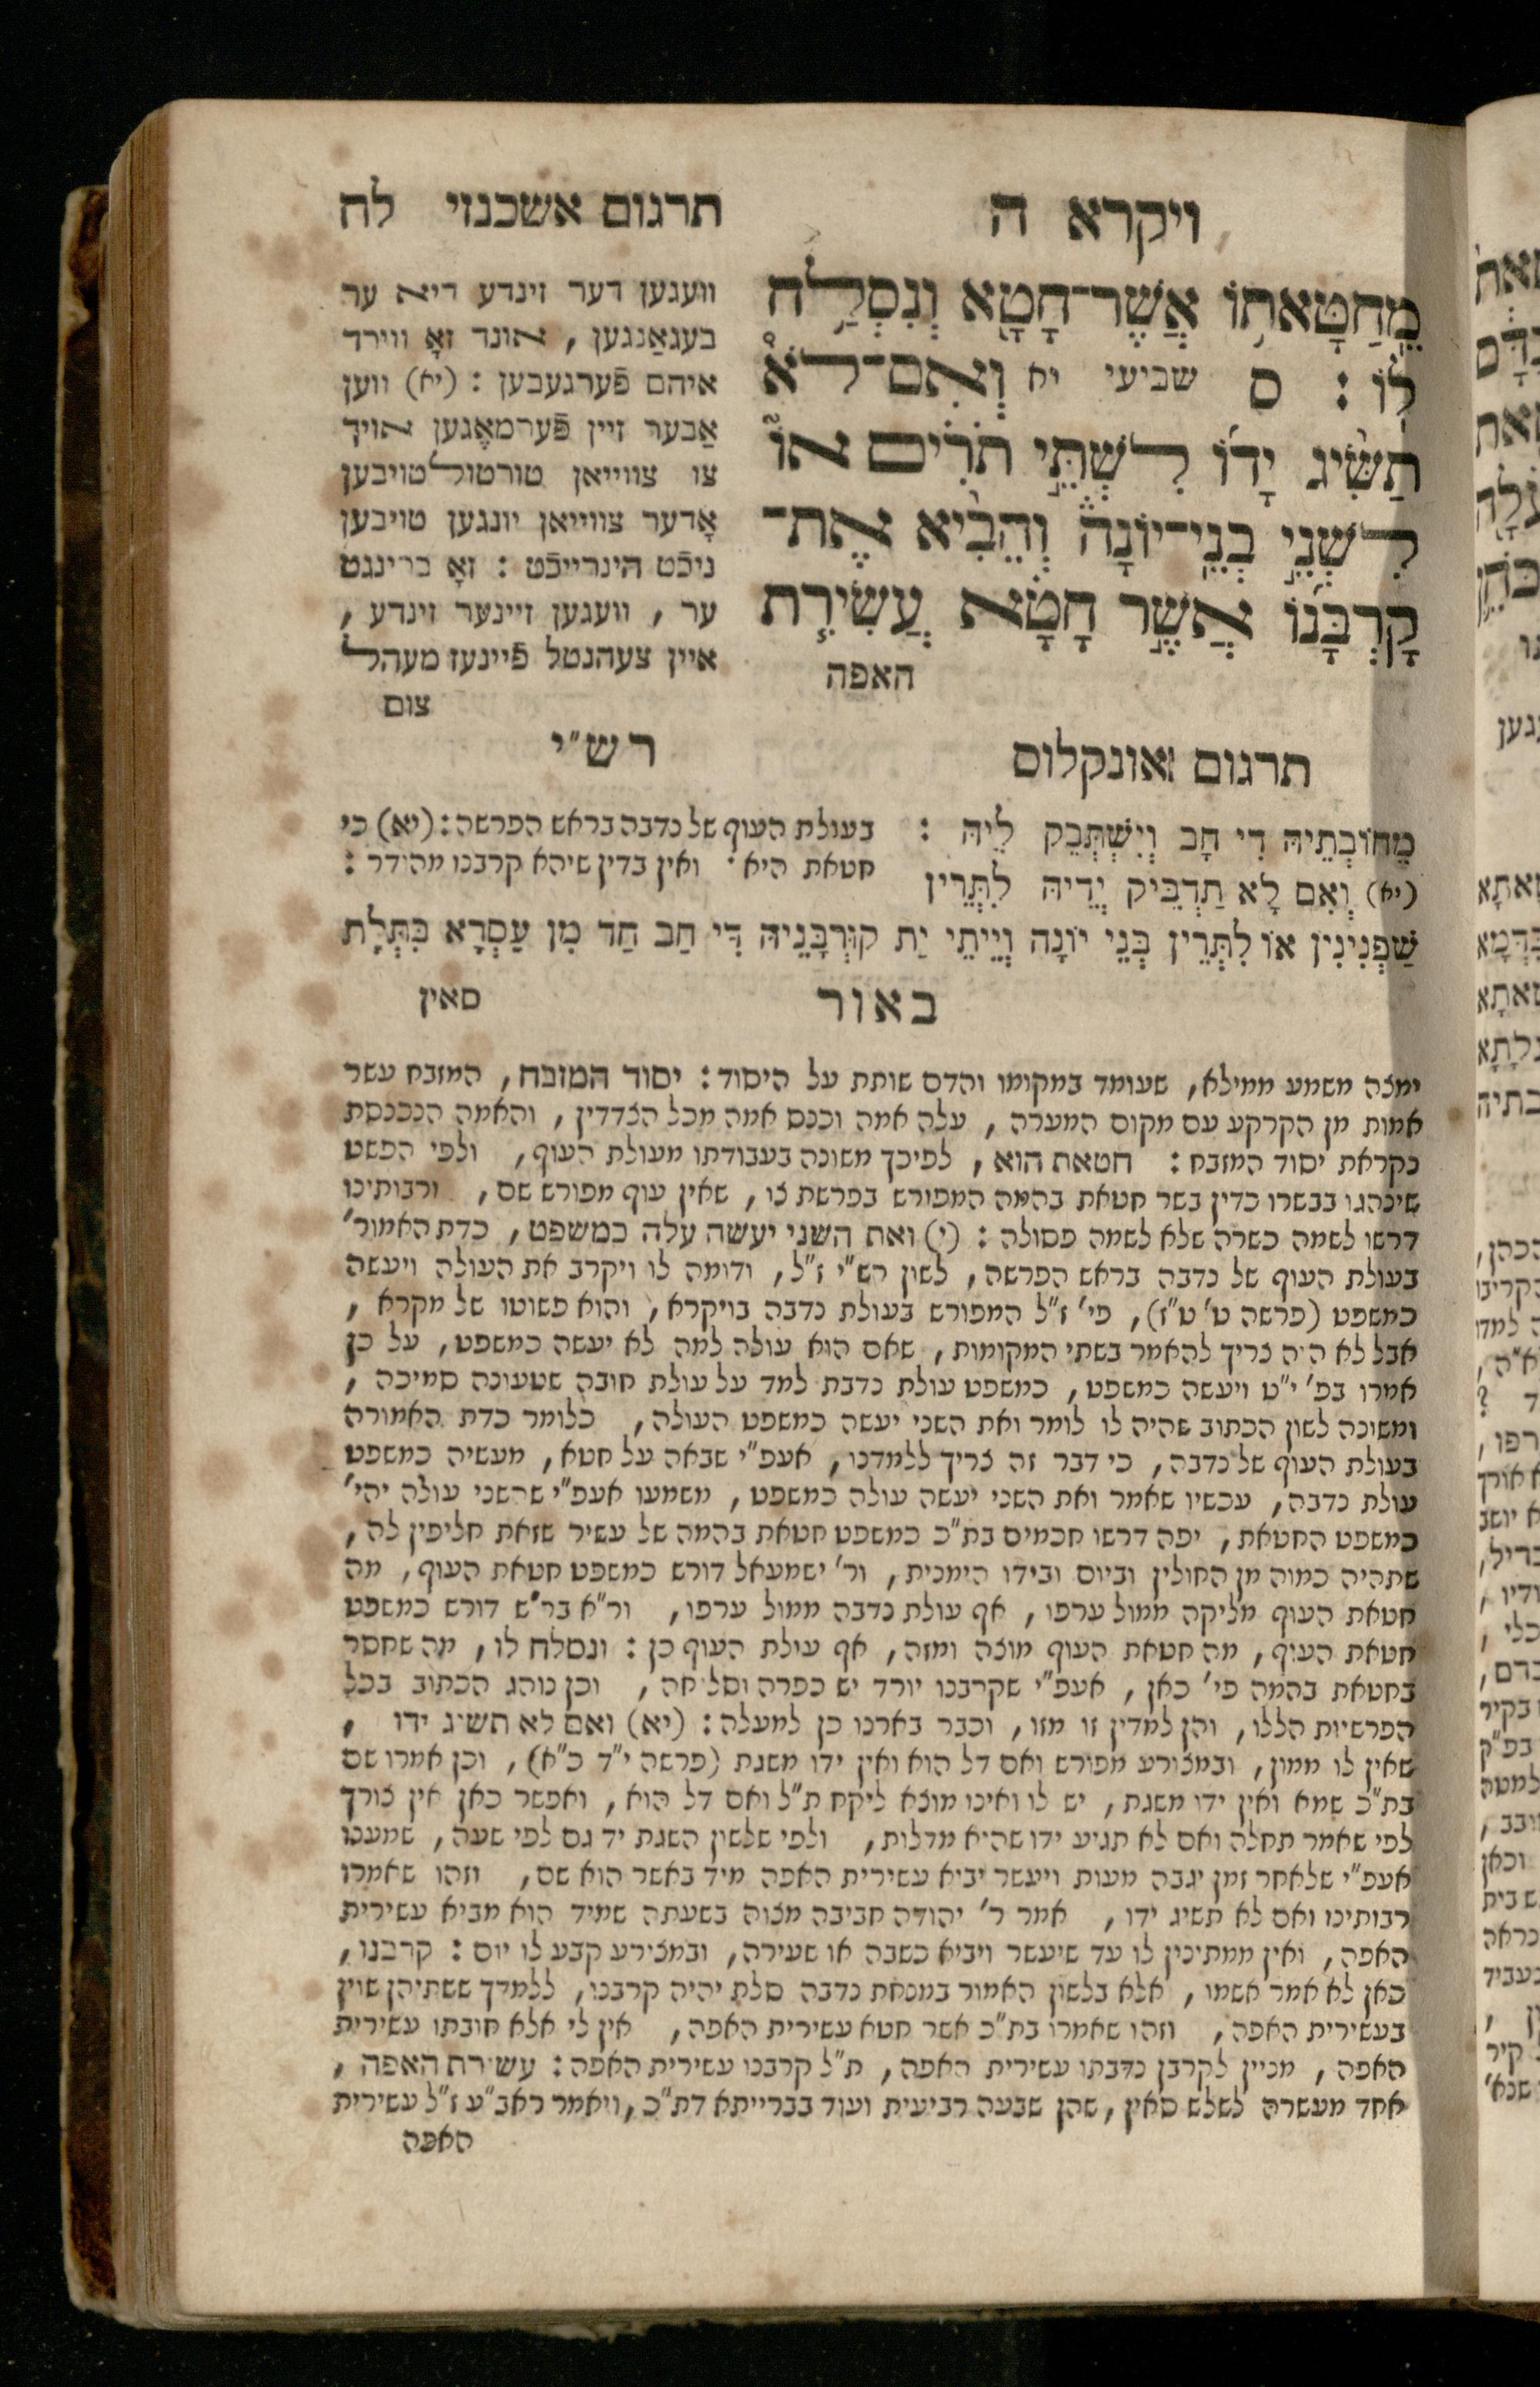 ויקרא ה
תרגום אשכנזי לח
מֵחַטָּאתוֹ אֲשֶׁר־חָטָא וְנִסְלַח
לוֹ : ס שביעי יא וְאִם־לֹא
תַשִּׂיג יָדוֹ לִשְׁתֵּי תֹרִים אוֹ
לִשְׁנֵי בְנֵי־יוֹנָה וְהֵבִיא אֶת־
קָרְבָּנוֹ אֲשֶׁר חָטָא עֲשִׂירִת
האפה
וועגען דער זינדע דיא ער
בעגאַנגען , אונד זאָ ווירד
איהם פֿערגעבען : (יא) ווען
אַבער זיין פֿערמאֶגען אויף
צו צווייאן טורטולטויבען
אָדער צווייאן יונגען טויבען
ניכֿט הינרייכֿט : זאָ ברינגט
ער , וועגען זיינער זינדע ,
איין צעהנטל פֿיינעז מעהל
צום
תרגום אונקלוס
מֵחוֹבְתֵיהּ דִי חָב וְיִשְׁתְּבֵק לֵיהּ :
(יא) וְאִם לָא תַדְבֵּיק יְדֵיהּ לִתְּרֵין
רש״י
בעולת העוף של נדבה בראש הפרשה : (יא) כי
חטאת היא · ואין בדין שיהא קרבנו מהודר :
שַׁפְנִינִין אוֹ לִתְּרֵין בְּנֵי יוֹנָה וְיֵיתֵי יַת קוּרְבָּנֵיהּ דִּי חַב חַד מִן עַסְרָא בִּתְלָת
סאין
באור
ימצה משמע ממילא , שעומד במקומו והדם שותת על היסוד : יסוד המזבח , המזבח עשר
אמות מן הקרקע עם מקום המערה , עלה אמה וכנס אמה מכל הצדדין , והאמה הנכנסת
נקראת יסוד המזבח : חטאת הוא , לפיכך משונה בעבודתו מעולת העוף , ולפי הפשט
שינהגו בבשרו כדין בשר חטאת בהמה המפורש בפרשת צו , שאין עוף מפורש שם , ורבותינו
דרשו לשמה כשרה שלא לשמה פסולה : (י) ואת השני יעשה עלה כמשפט , כדת האמור׳
בעולת העוף של נדבה בראש הפרשה , לשון רש״י ז״ל , ודומה לו ויקרב את העולה ויעשה
כמשפט (פרשה ט׳ ט״ז) , פי׳ ז״ל המפורש בעולת נדבה בויקרא , והוא פשוטו של מקרא ,
אבל לא היה צריך להאמר בשתי המקומות , שאם הוא עולה למה לא יעשה כמשפט , על כן
אמרו בפ׳ י״ט ויעשה כמשפט , כמשפט עולת נדבת למד על עולת חובה שטעונה סמיכה ,
ומשונה לשון הכתוב שהיה לו לומר ואת השני יעשה כמשפט העולה , כלומר כדת האמורה
בעולת העוף של נדבה , כי דבר זה צריך ללמדנו , אעפ״י שבאה על חטא , מעשיה כמשפט
עולת נדבה , עכשיו שאמר ואת השני יעשה עולה כמשפט , משמעו אעפ״י שהשני עולה יהי׳
כמשפט החטאת , יפה דרשו חכמים בת״כ כמשפט חטאת בהמה של עשיר שזאת חליפין לה ,
שתהיה כמוה מן החולין וביום ובידו הימנית , ור׳ ישמעאל דורש כמשפט חטאת העוף , מה
חטאת העוף מליקה ממול ערפו , אף עולת נדבה ממול ערפו , ור״א בר״ש דורש כמשפט
חטאת העוף , מה חטאת העוף מוצה ומזה , אף עולת העוף כן : ונסלח לו , מה שחסר
בחטאת בהמה פי׳ כאן , אעפ״י שקרבנו יורד יש כפרה וסליחה , וכן נוהג הכתוב בכל
הפרשיות הללו , והן למדין זו מזו , וכבר בארנו כן למעלה : (יא) ואם לא תשיג ידו ,
שאין לו ממון , ובמצורע מפורש ואם דל הוא ואין ידו משגת (פרשה י״ד כ״א) , וכן אמרו שם
בת״כ שמא ואין ידו משגת , יש לו ואינו מוצא ליקח ת״ל ואם דל הוא , ואפשר כאן אין צורך
לפי שאמר תחלה ואם לא תגיע ידו שהיא מדלות , ולפי שלשון השגת יד גם לפי שעה , שמענו
אעפ״י שלאחר זמן יגבה מעות ויעשר יביא עשירית האפה מיד באשר הוא שם , וזהו שאמרו
רבותינו ואם לא תשיג ידו , אמר ר׳ יהודה חביבה מצוה בשעתה שמיד הוא מביא עשירית
האפה , ואין ממתינין לו עד שיעשר ויביא כשבה או שעירה , ובמצורע קבע לו יום : קרבנו ,
כאן לא אמר אשמו , אלא בלשון האמור במנחת נדבה סלת יהיה קרבנו , ללמדך ששתיהן שוין
בעשירית האפה , וזהו שאמרו בת״כ אשר חטא עשירית האפה , אין לי אלא חובתו עשירית
האפה , מניין לקרבן נדבתו עשירית האפה , ת״ל קרבנו עשירית האפה : עשירת האפה ,
אחד מעשרה לשלש סאין , שהן שבעה רביעית ועוד בברייתא דת״כ , ויאמר ראב״ע ז״ל עשירית
האפה